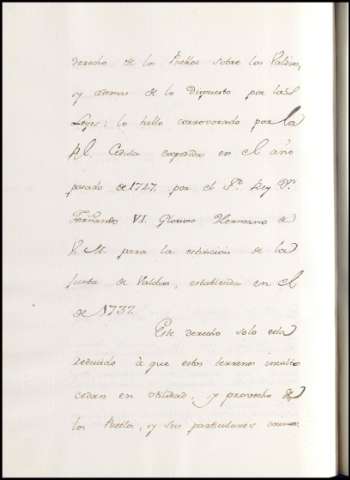 derecho de los Pueblos sobre los Valdios,
y ademas de lo Dispuesto por las
Leyes: lo hallo corrovorado por la
Rl. Cedula expedida en el año
pasado de 1747. por el Sr. Rey Dn.
Fernando VI. Glorioso Hermano de
V. M. para la extincion de la
Junta de Valdios, establecida en el
de 1737.
Este derecho solo esta
reducido à que estos terrenos incultos
cedan en utilidad, y provecho de
los Pueblos, y sus particulares